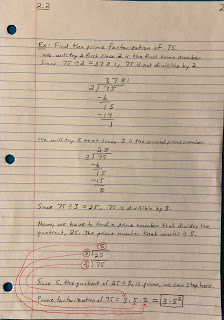 2.2
2
Ex: Find the prime factorization of 75.
We will try 2 first since 2 is the first prime number.
Since 75 ÷ 2 = 37 R1, 75 is not divisible by 2.
37 R1
2) 75
-6
15
-14
1
We will try 3 next since 3 is the second prime number.
25
3) 75
-6
15
-15
0
Since 75 ÷ 3 = 25, 75 is divisible by 3.
Now, we have to find a prime number that divides the
quotient, 25. The prime number that works is 5.
5
5) 25
3) 75
Since 5, the quotient of 25 ÷ 5, is prime, we can stop here.
Prime factorization of 75 = 3·5·5 = 3·5²